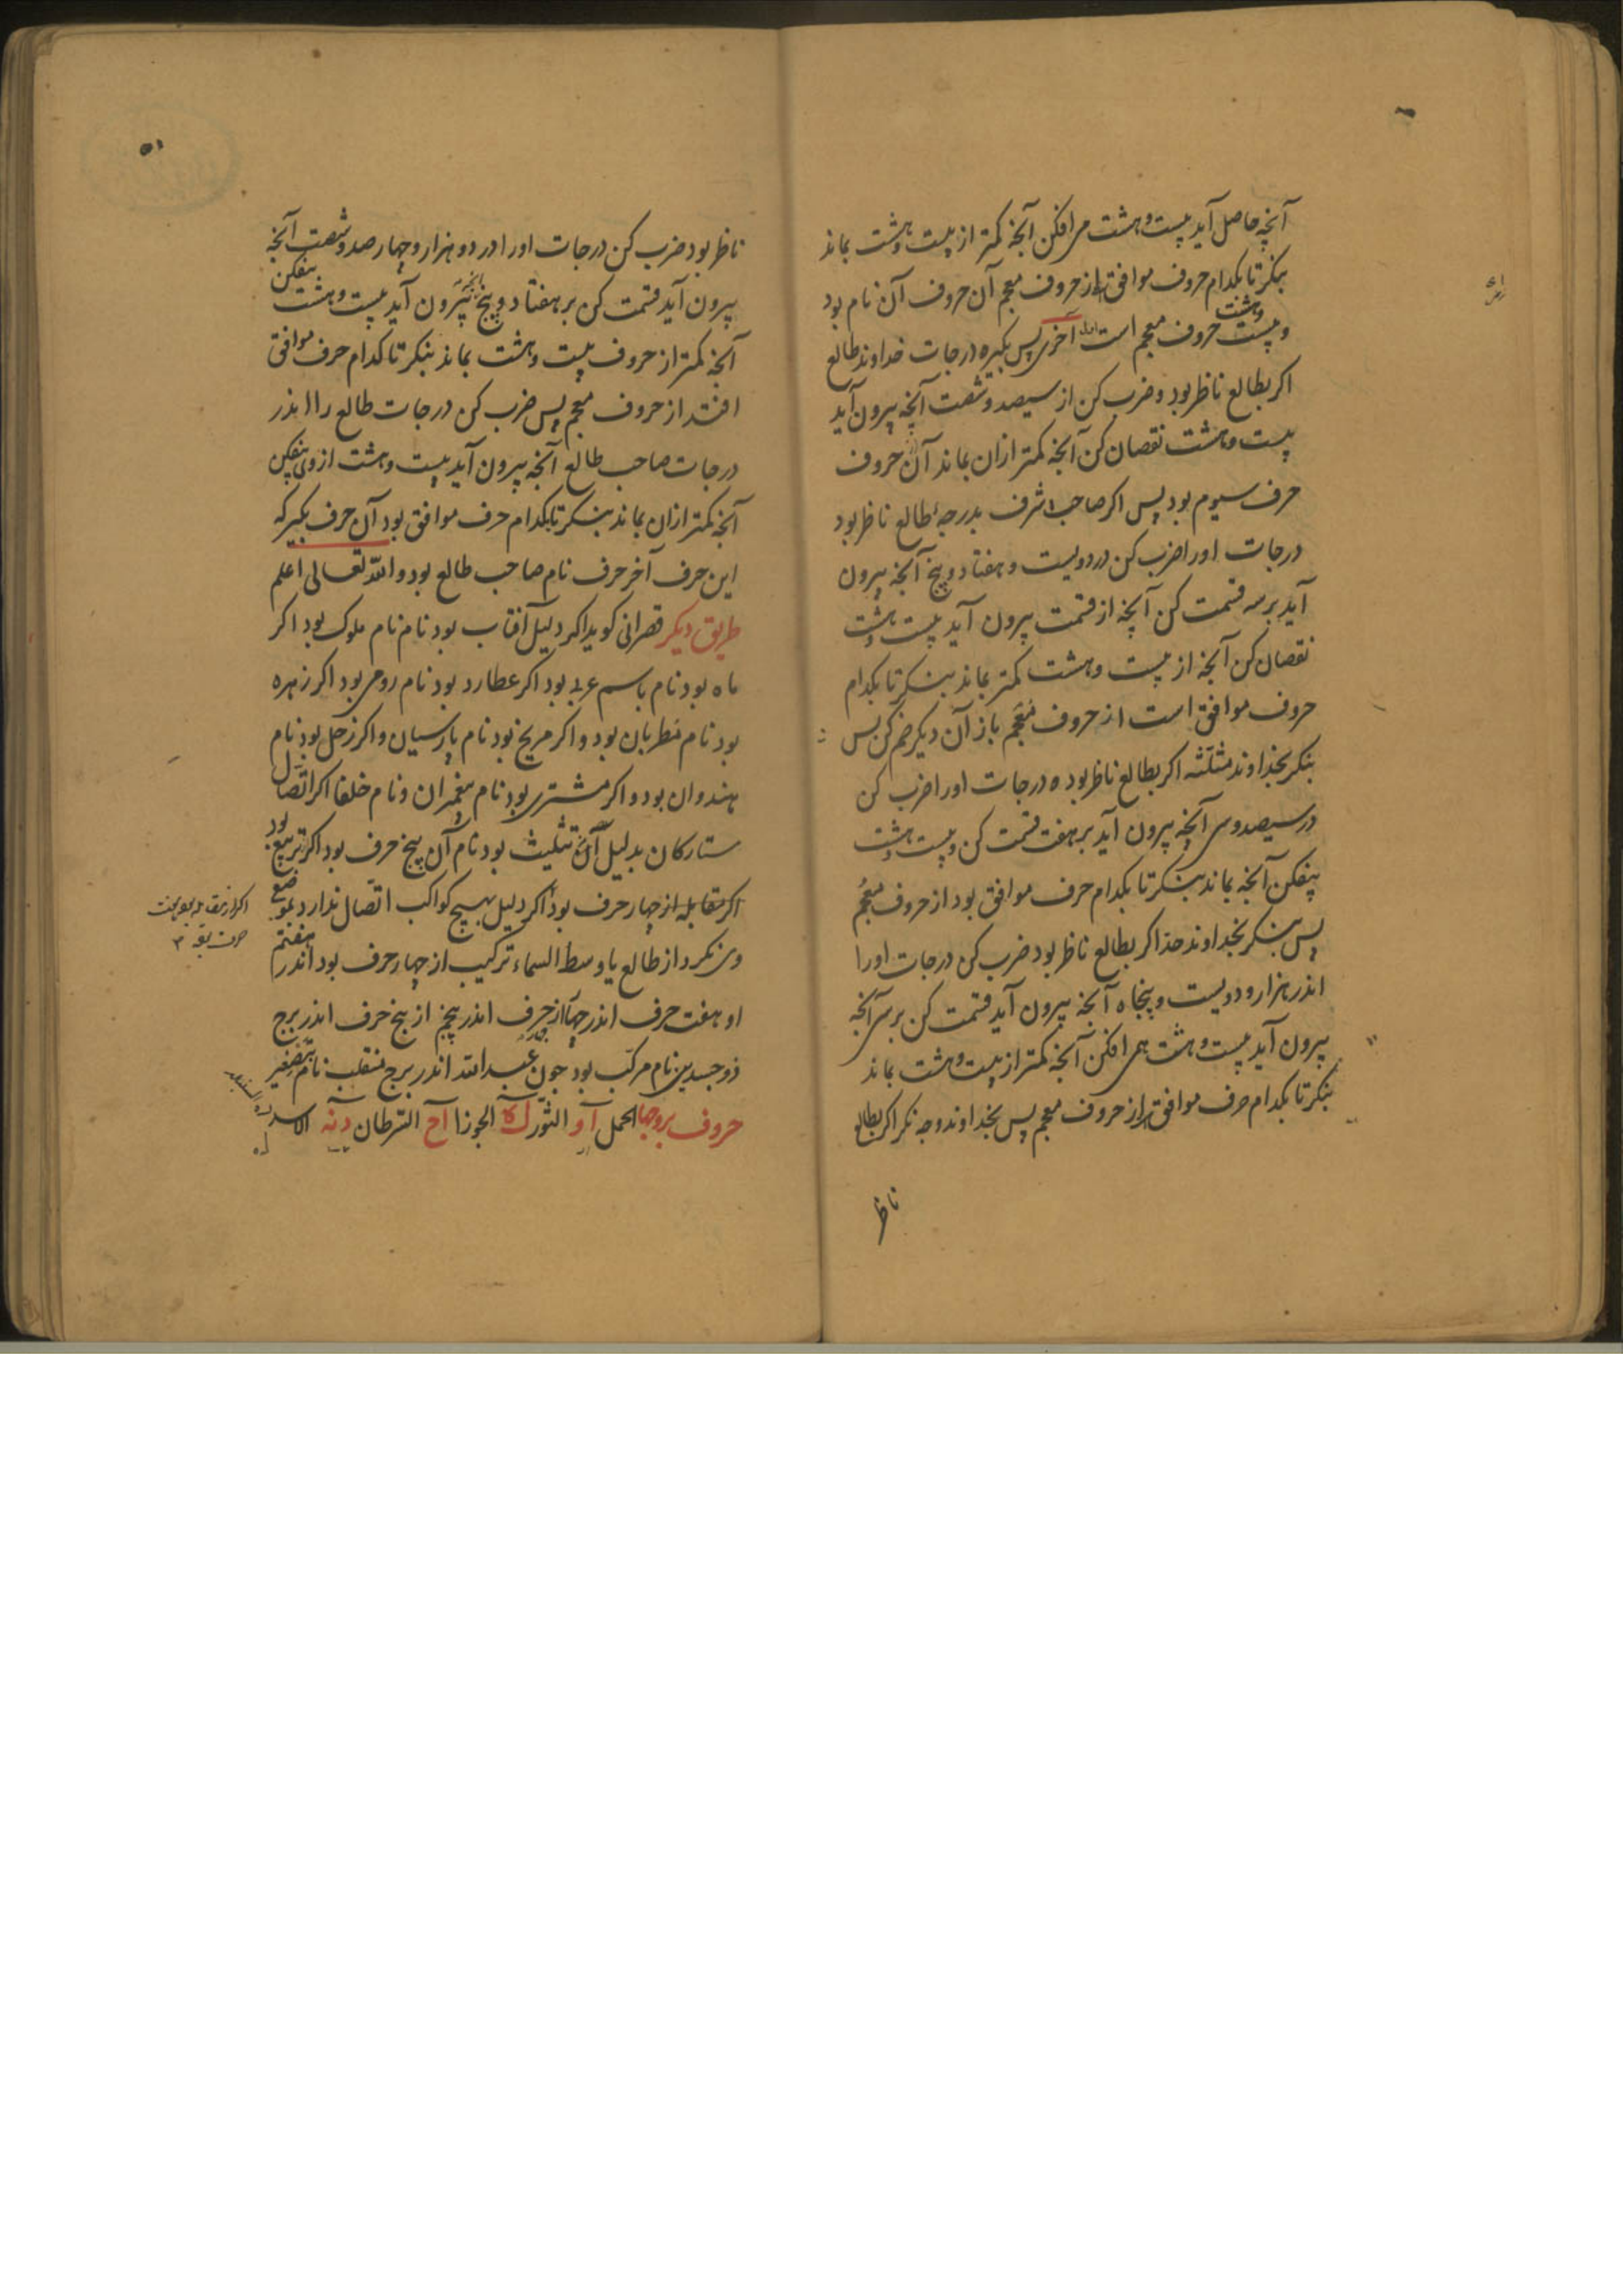 آنچه حاصل آید بیست و هشت می افکن آنچه کمتر از بیست و هشت بماند
بنکر تا بکدام حروف موافق از حروف معجم آن حروف آن نام بود
و بیست و هشت حروف معجم است آخری پس بکیر درجات خداوند طالع
اکر بطالع ناظر بود و ضرب کن از سیصد و شصت آنچه بیرون آید
بیست و هشت نقصان کن آنچه کمتر ازان بماند آن حروف
حرف سیوم بود پس اکر صاحب شرف بدرجهٔ طالع ناظر بود
درجات اورا ضرب کن در دویست و هفتاد و پنج آنچه بیرون
آید بر سه قسمت کن آنچه از قسمت بیرون آید بیست و هشت
نقصان کن آنچه از بیست و هشت کمتر بماند بنکر تا بکدام
حروف موافق است از حروف معجم باز آن دیکر ضم کن پس
بنکر بخداوند مثلثه اکر بطالع ناظر بود درجات اورا ضرب کن
در سیصد و سی آنچه بیرون آید بر هفت قسمت کن و بیست و هشت
بیفکن آنچه بماند بنکر تا بکدام حرف موافق بود از حروف معجم
پس بنکر بخداوند حد اکر بطالع ناظر بود ضرب کن درجات اورا
اندر هزار و دویست و پنجاه آنچه بیرون آید قسمت کن بر سی آنچه
بیرون آید بیست و هشت همی افکن آنچه کمتر از بیست و هشت بماند
بنکر تا بکدام حرف موافق از حروف معجم پس بخداوند وجه نکر اکر بطالع
ناظر
۵۱
ناظر بود ضرب کن درجات اورا در دو هزار و چهار صد و شصت آنچه
بیرون آید قسمت کن بر هفتاد و پنج آنچه بیرون آید بیست و هشت بیفکن
آنچه کمتر از حروف بیست و هشت بماند بنکر تا کدام حرف موافق
افتد از حروف معجم پس ضرب کن درجات طالع را اندر
درجات صاحب طالع آنچه بیرون آید بیست و هشت از وی بیفکن
آنچه کمتر ازان بماند بنکر تا بکدام حرف موافق بود آن حرف بکیر که
این حرف آخر حرف نام صاحب طالع بود والله تعالی اعلم
طریق دیکر قصرانی کوید اکر دلیل آفتاب بود نام نام ملوک بود اکر
ماه بود نام باسم عربی بود اکر عطارد بود نام رومی بود اکر زهره
بود نام مطربان بود و اکر مریخ بود نام پارسیان و اکر زحل بود نام
هندوان بود و اکر مشتری بود نام پیغمبران و نام خلفا اکر اتصال
ستارکان بدلیل آن تثلیث بود نام آن پنج حرف بود اکر تربیع بود
اکر مقابله از چهار حرف بود اکر دلیل بهیچ کواکب اتصال ندارد بموضع
وی نکرد از طالع یا وسط السماء ترکیب از چهار حرف بود اندر هفتم
او هفت حرف اندر چهارم از حرف اندر پنجم از پنج حرف اندر برج
ذو جسدین نام مرکب بود چون عبدالله اندر برج منقلب نام بتصغیر
حروف بروجها الحمل آ و الثور ل کا الجوزا آ ح السرطان د نه الاسد